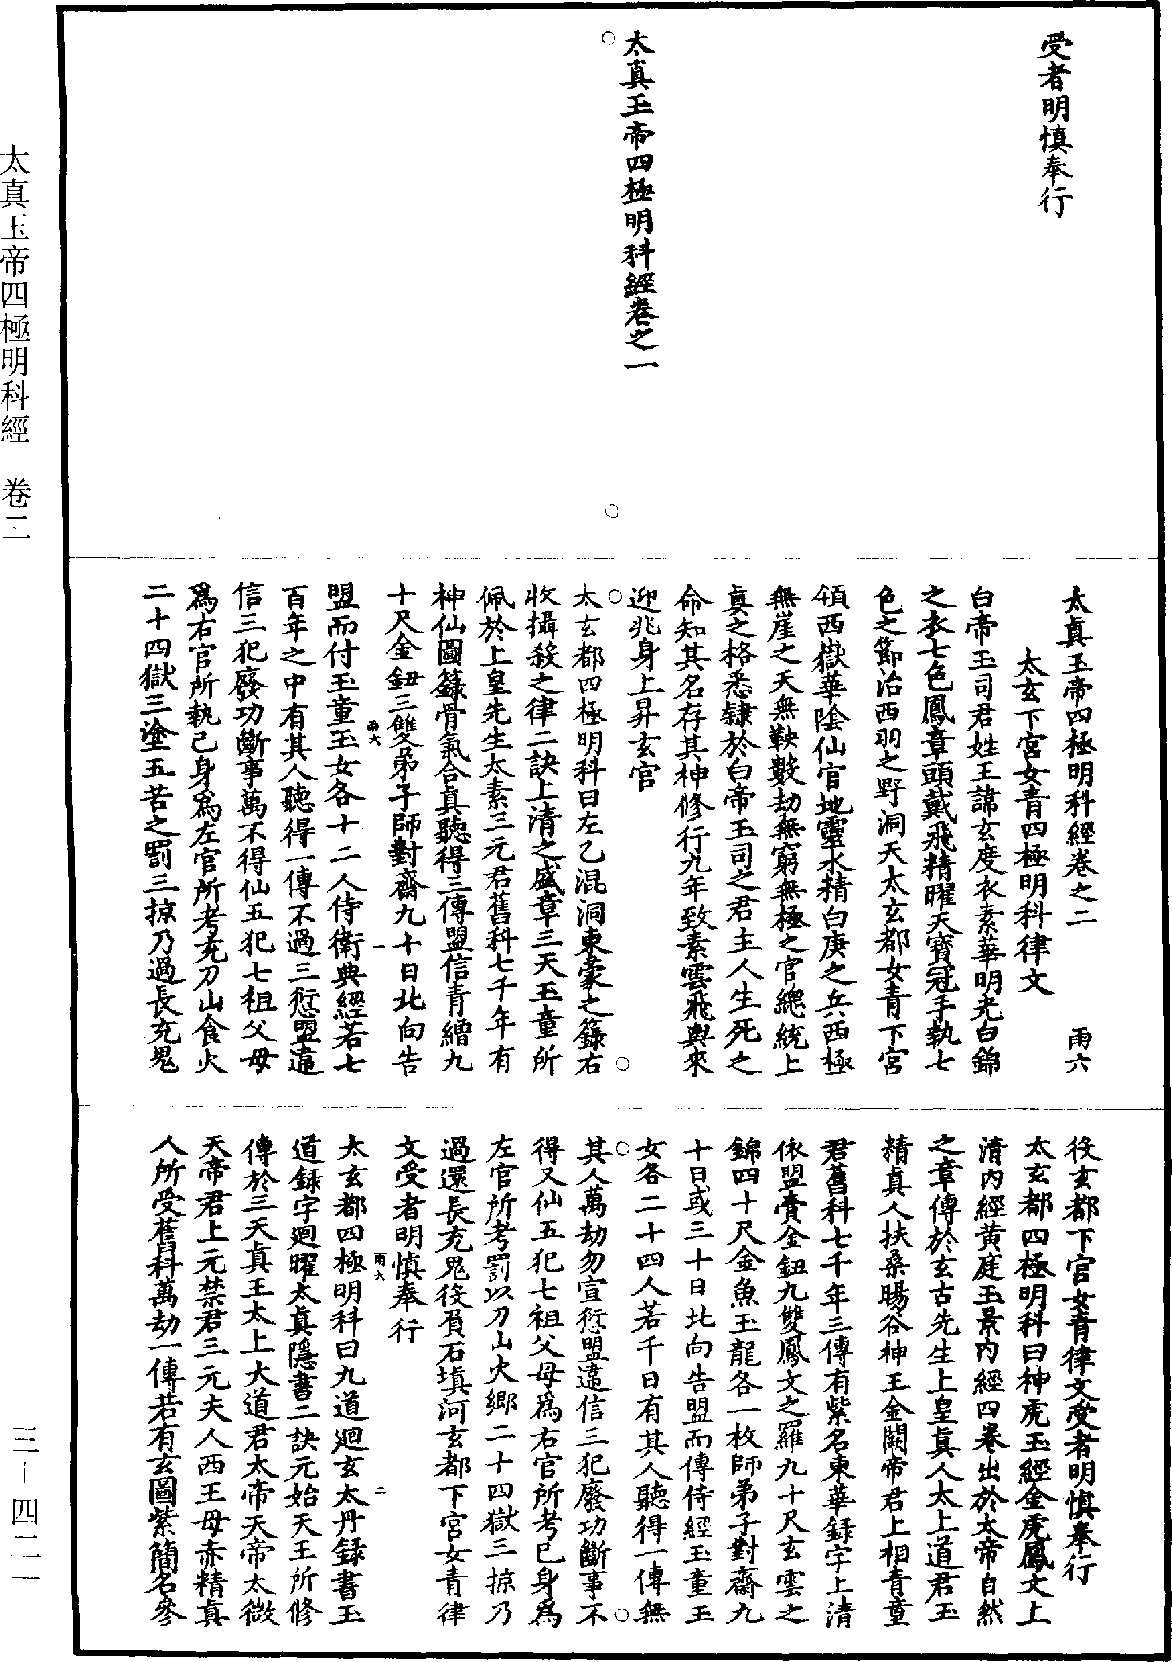 受者明慎奉行
太真玉帝四極明科經卷之一
太真玉帝四極明科經卷之二 雨六
太玄下宮女青四極明科律文
白帝玉司君姓王諱玄度衣素華明光白錦
之衣七色鳳章頭戴飛精曜天寶冠手執七
色之節治西羽之野洞天太玄都女青下宮
領西嶽華陰仙官地靈水精白庚之兵西極
無崖之天無鞅數劫無窮無極之官總統上
真之格悉隸於白帝玉司之君主人生死之
命知其名存其神修行九年致素雲飛輿來
迎兆身上昇玄宮
太玄都四極明科曰左乙混洞東蒙之籙右
收攝殺之律二訣上清之盛章三天玉童所
佩於上皇先生太素三元君舊科七千年有
神仙圖籙骨氣合真聽得三傳盟信青繒九
十尺金鈕三雙弟子師對齋九十日北向告
雨六 一
盟而付玉童玉女各十二人侍衛典經若七
百年之中有其人聽得一傳不過三愆盟違
信三犯廢功斷事萬不得仙五犯七祖父母
為右官所執己身為左官所考充刀山食火
二十四獄三塗五苦之罰三掠乃過長充鬼
役玄都下官女青律文受者明慎奉行
太玄都四極明科曰神虎玉經金虎鳳文上
清內經黃庭玉景內經四卷出於太帝自然
之章傳於玄古先生上皇真人太上道君玉
精真人扶桑暘谷神王金闕帝君上相青童
君舊科七千年三傳有紫名東華錄字上清
依盟賫金鈕九雙鳳文之羅九十尺玄雲之
錦四十尺金魚玉龍各一枚師弟子對齋九
十日或三十日北向告盟而傳侍經玉童玉
女各二十四人若千日有其人聽得一傳無
其人萬劫勿宣愆盟違信三犯廢功斷事不
得又仙五犯七祖父母為右官所考己身為
左官所考罰以刀山火鄉二十四獄三掠乃
過還長充鬼役負石填河玄都下宮女青律
文受者明慎奉行
雨六 二
太玄都四極明科曰九道迴玄太丹錄書玉
道錄字迴曜太真隱書二訣元始天王所修
傳於三天真王太上大道君太帝天帝太微
天帝君上元禁君三元夫人西王母赤精真
人所受舊科萬劫一傳若有玄圖紫簡名參
太真玉帝四極明科經 卷二
三—四二一